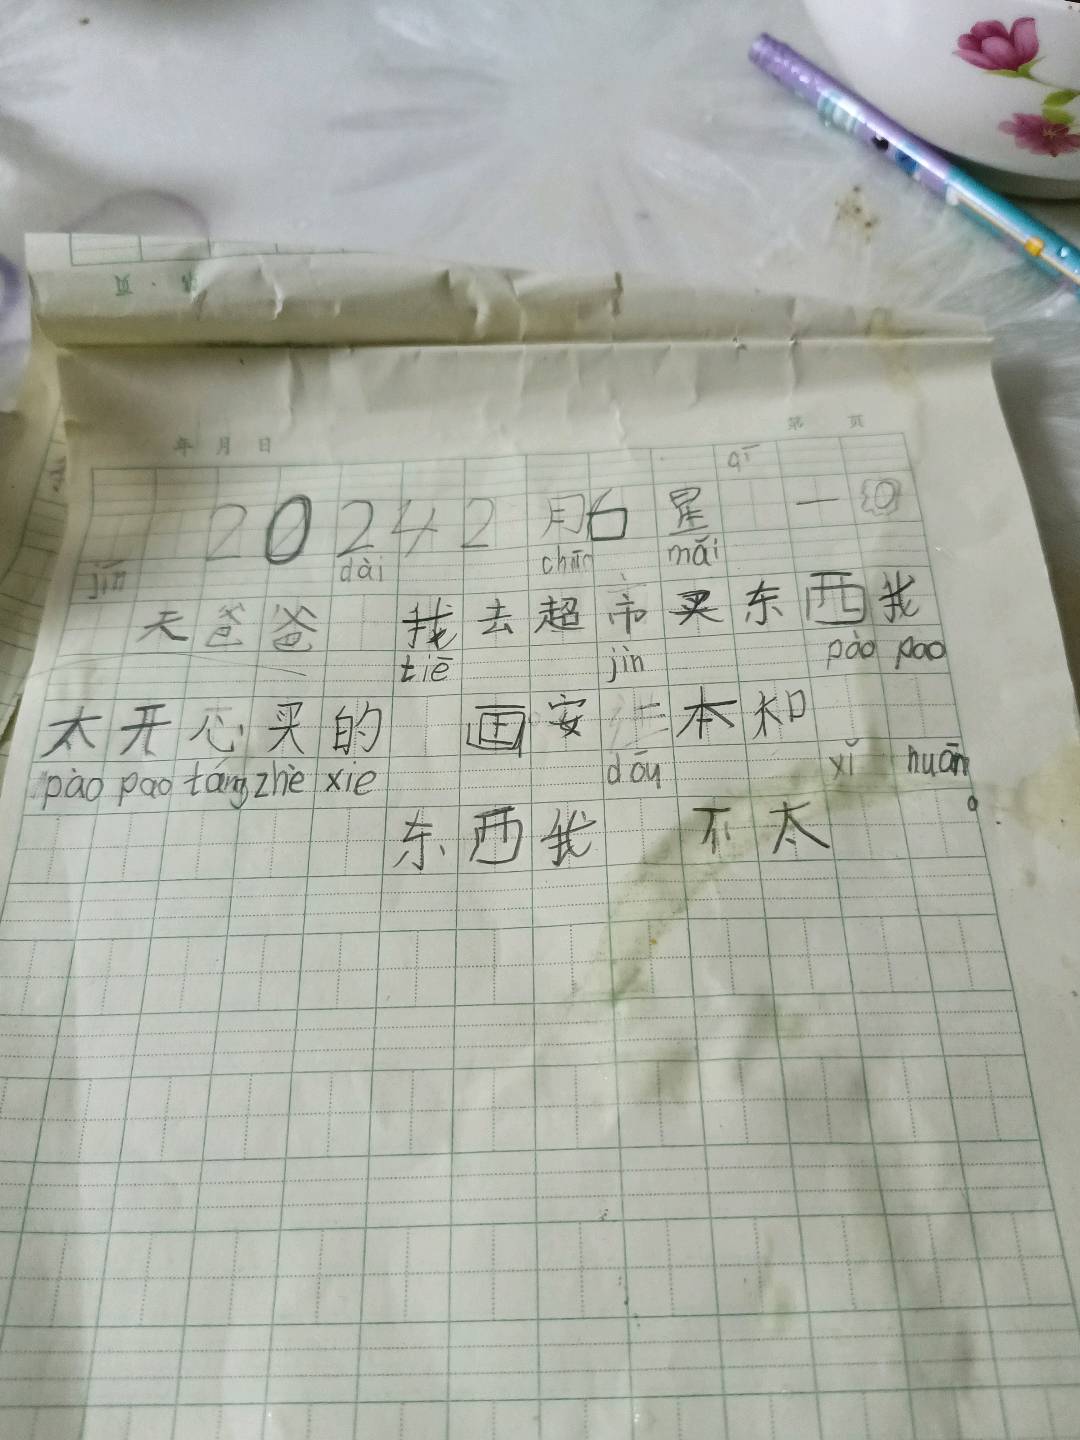 年 月 日
第 页
qī
20242月6星 一
jīn dài chāo mǎi
天爸爸 我去超市买东西我
tiē jìn pào pao
太开心买的 画安 本和
pào pao táng zhè xie dōu xǐ huān
东西我 不太。